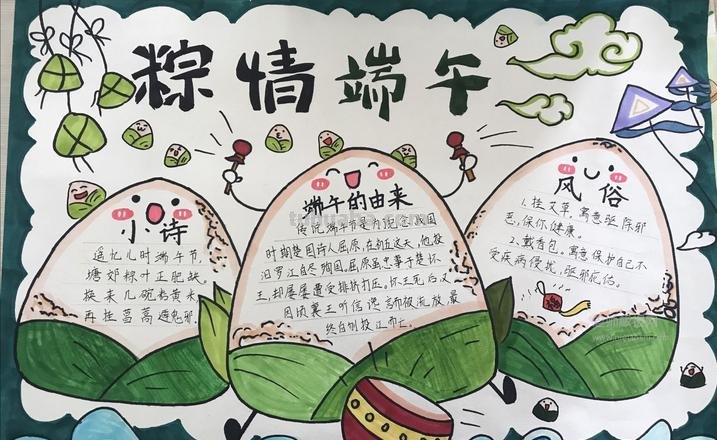 粽情端午
小诗
遥忆儿时端午节,
塘郊粽叶正肥缺。
换来几碗
再挂菖蒿遇鬼邪.
端午的由来
传说端午节是为纪念战国
时期楚国诗人屈原,在初五这天,他投
汨罗江自尽殉国。屈原虽忠事于楚怀
王,却屡屡遭受排挤打压。怀王死后又
因顷襄王听信谗而被流放,最
终自刎投江而亡。
风俗
1.挂艾草,寓意驱除邪
恶,保你健康。
2.戴香包,寓意保护自己不
受疾病侵扰,驱邪庇佑。